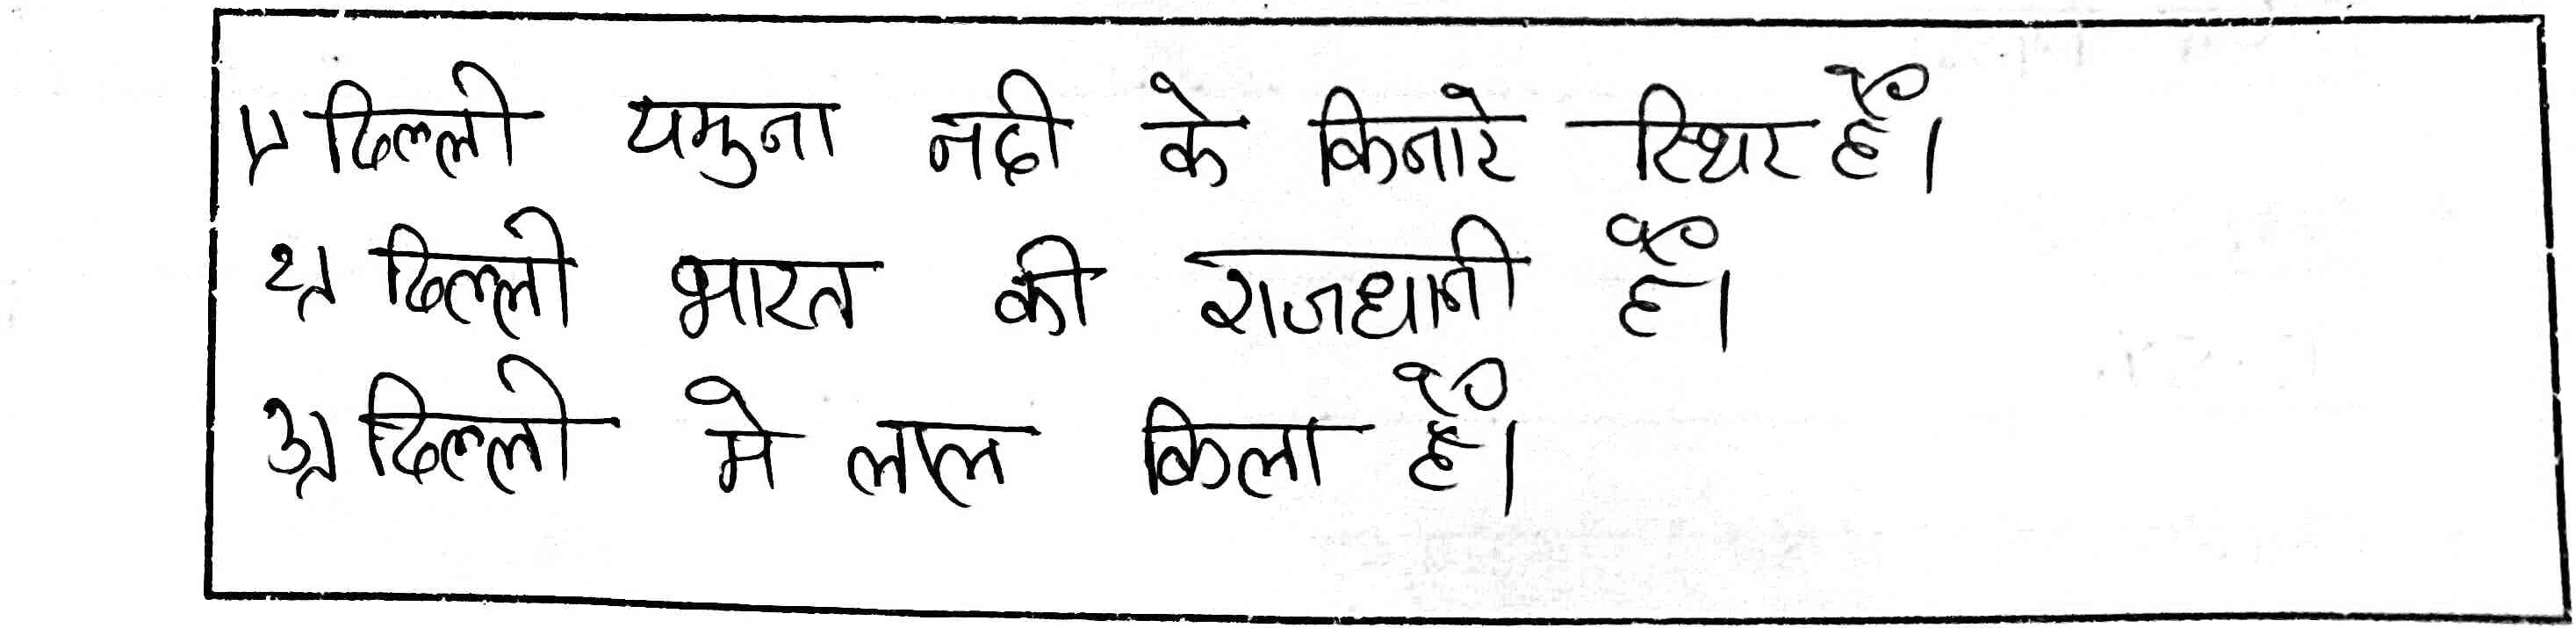 १) दिल्ली यमुना नदी के किनारे स्थिर हैं।
२) दिल्ली भारत की राजधानी हैं।
३) दिल्ली मे लाल किला हैं।